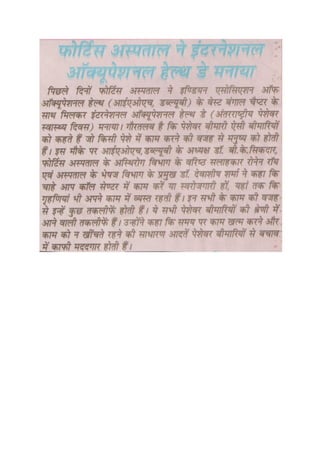 फोर्टिस अस्पताल ने इंटरनेशनल
ऑक्यूपेशनल हेल्थ डे मनाया
पिछले दिनों फोर्टिस अस्पताल ने इण्डियन एसोसिएशन ऑफ
ऑक्यूपेशनल हेल्थ (आईएओएच, डब्ल्यूबी) के वेस्ट बंगाल चैप्टर के
साथ मिलकर इंटरनेशनल ऑक्यूपेशनल हेल्थ डे (अंतरराष्ट्रीय पेशेवर
स्वास्थ्य दिवस) मनाया। गौरतलब है कि पेशेवर बीमारी ऐसी बीमारियों
को कहते हैं जो किसी पेशे में काम करने की वजह से मनुष्य को होती
हैं। इस मौके पर आईएओएच,डब्ल्यूबी के अध्यक्ष डॉ. बी.के.सिकदार,
फोर्टिस अस्पताल के अस्थिरोग विभाग के वरिष्ठ सलाहकार रोनेन रॉय
एवं अस्पताल के भेषज विभाग के प्रमुख डॉ. देवाशीष शर्मा ने कहा कि
चाहे आप कॉल सेण्टर में काम करें या स्वरोजगारी हों, यहां तक कि
गृहणियां भी अपने काम में व्यस्त रहती हैं। इन सभी के काम की वजह
से इन्हें कुछ तकलीफें होती हैं। ये सभी पेशेवर बीमारियों की श्रेणी में
आने वाली तकलीफें हैं। उन्होंने कहा कि समय पर काम खत्म करने और
काम को न खींचते रहने की साधारण आदतें पेशेवर बीमारियों से बचाव
में काफी मददगार होती हैं।